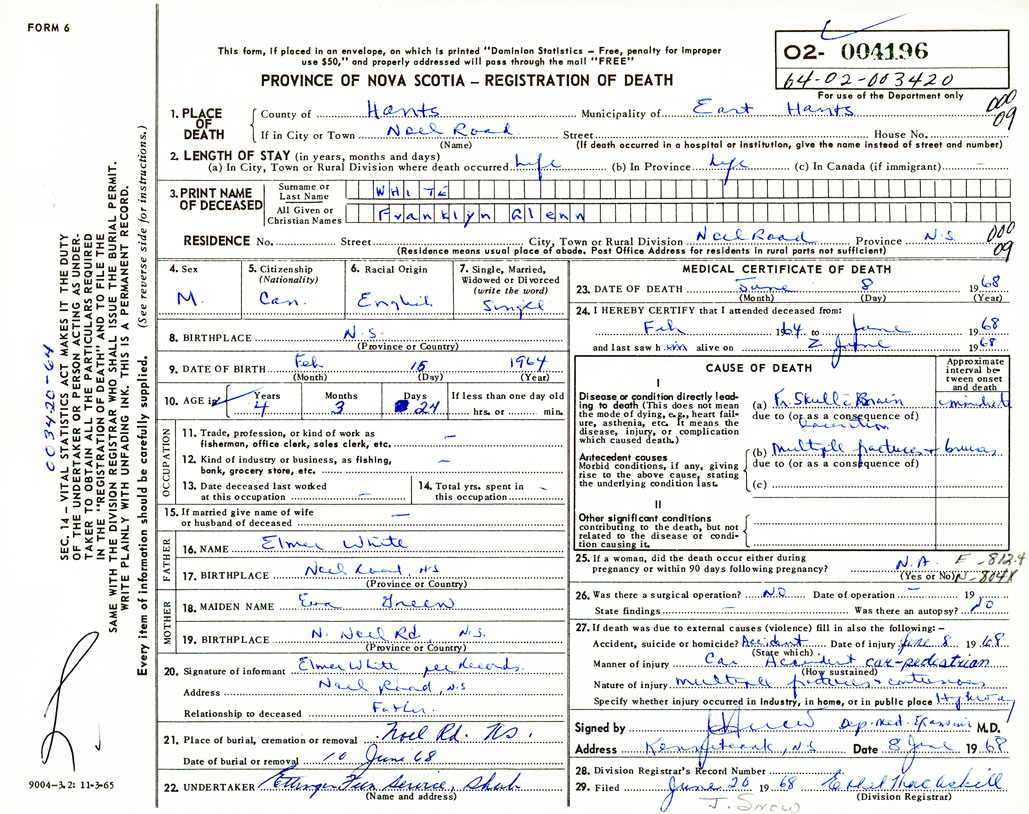 FORM 6
This form, if placed in an envelope, on which is printed "Dominion Statistics – Free, penalty for improper
use $50," and properly addressed will pass through the mail "FREE"
PROVINCE OF NOVA SCOTIA – REGISTRATION OF DEATH
02- 004196
64-02-003420
For use of the Department only
1. PLACE OF DEATH
County of Hants Municipality of East Hants 000
If in City or Town Noel Road Street House No. 09
(Name) (If death occurred in a hospital or institution, give the name instead of street and number)
2. LENGTH OF STAY (in years, months and days)
(a) In City, Town or Rural Division where death occurred Life (b) In Province Life (c) In Canada (if immigrant) –
3. PRINT NAME OF DECEASED
Surname or Last Name WHITE
All Given or Christian Names Franklyn Glenn
RESIDENCE No. Street City, Town or Rural Division Noel Road Province N.S. 000
(Residence means usual place of abode. Post Office Address for residents in rural parts not sufficient) 09
4. Sex M.
5. Citizenship (Nationality) Can.
6. Racial Origin English
7. Single, Married, Widowed or Divorced (write the word) Single
8. BIRTHPLACE N.S.
(Province or Country)
9. DATE OF BIRTH Feb 15 1964
(Month) (Day) (Year)
10. AGE in Years 4 Months 3 Days 24 If less than one day old hrs. or min.
OCCUPATION
11. Trade, profession, or kind of work as
fisherman, office clerk, sales clerk, etc. –
12. Kind of industry or business, as fishing,
bank, grocery store, etc. –
13. Date deceased last worked
at this occupation –
14. Total yrs. spent in
this occupation –
15. If married give name of wife
or husband of deceased –
FATHER
16. NAME Elmer White
17. BIRTHPLACE Noel Road, N.S
(Province or Country)
MOTHER
18. MAIDEN NAME Eva Green
19. BIRTHPLACE N. Noel Rd, N.S.
(Province or Country)
20. Signature of informant Elmer White per Records.
Address Noel Road, N.S
Relationship to deceased Father.
21. Place of burial, cremation or removal Noel Rd. NS.
Date of burial or removal 10 June 68
22. UNDERTAKER Ettinger Fun Service, Shub.
(Name and address)
MEDICAL CERTIFICATE OF DEATH
23. DATE OF DEATH June 8 1968
(Month) (Day) (Year)
24. I HEREBY CERTIFY that I attended deceased from:
Feb 1964 to June 1968
and last saw h im alive on 2 June 1968
CAUSE OF DEATH
Approximate interval between onset and death
I
Disease or condition directly leading to death (This does not mean the mode of dying, e.g., heart failure, asthenia, etc. It means the disease, injury, or complication which caused death.)
(a) Fr Skull & Brain
due to (or as a consequence of)
Antecedent causes
Morbid conditions, if any, giving rise to the above cause, stating the underlying condition last.
(b) Multiple fractures +
due to (or as a consequence of)
(c)
II
Other significant conditions
contributing to the death, but not related to the disease or condition causing it.
25. If a woman, did the death occur either during
pregnancy or within 90 days following pregnancy? N.A. E-812.4
(Yes or No) N-804X
26. Was there a surgical operation? NO Date of operation – 19
State findings – Was there an autopsy? NO
27. If death was due to external causes (violence) fill in also the following:–
Accident, suicide or homicide? Accident Date of injury June 8 1968
(State which)
Manner of injury Car Accident car-pedistrian
(How sustained)
Nature of injury multiple fractures + contusions
Specify whether injury occurred in industry, in home, or in public place Highway
Signed by Dep. Med. M.D.
Address Kennetcook, N.S Date 8 June 1968
28. Division Registrar's Record Number
29. Filed June 20 1968 Ethel MacAskill
(Division Registrar)
J. Snow
003420-64
SEC. 14 – VITAL STATISTICS ACT MAKES IT THE DUTY
OF THE UNDERTAKER OR PERSON ACTING AS UNDER-
TAKER TO OBTAIN ALL THE PARTICULARS REQUIRED
IN THE "REGISTRATION OF DEATH" AND TO FILE THE
SAME WITH THE DIVISION REGISTRAR WHO SHALL ISSUE THE BURIAL PERMIT.
WRITE PLAINLY WITH UNFADING INK. THIS IS A PERMANENT RECORD.
Every item of information should be carefully supplied. (See reverse side for instructions.)
9004–3.2: 11-3-65